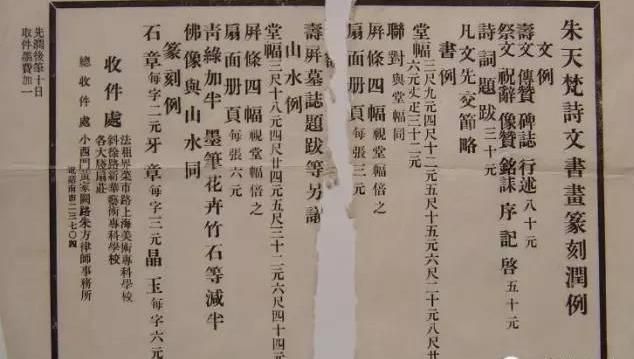 朱天梵詩文書畫篆刻潤例
文例
壽文 傳贊 碑誌 行述 八十元
祭文 祝辭 像贊 銘誄 序 記 啓 五十元
詩詞題跋 三十元
凡文先交節略
書例
堂幅 三尺九元 四尺十二元 五尺十五元 六尺二十元 八尺廿
六元 丈疋三十二元
聯對 與堂幅同
屏條四幅 視堂幅倍之
扇面册頁 每張三元
壽屏墓誌題跋等另議
山水例
堂幅 三尺十八元 四尺廿四元 五尺三十二元 六尺四十四元
屏條四幅 視堂幅倍之
扇面册頁 每張六元
青綠加半 墨筆花卉竹石等減半
佛像與山水同
篆刻例
石章 每字二元 牙章 每字三元 晶玉 每字六元
收件處
法租界菜市路上海美術專科學校
斜徐路新華藝術專科學校
各大牋扇莊
總收件處 小西門黃家闕路朱方律師事務所
電話南市二三七〇四
先潤後筆十日
取件墨費加一